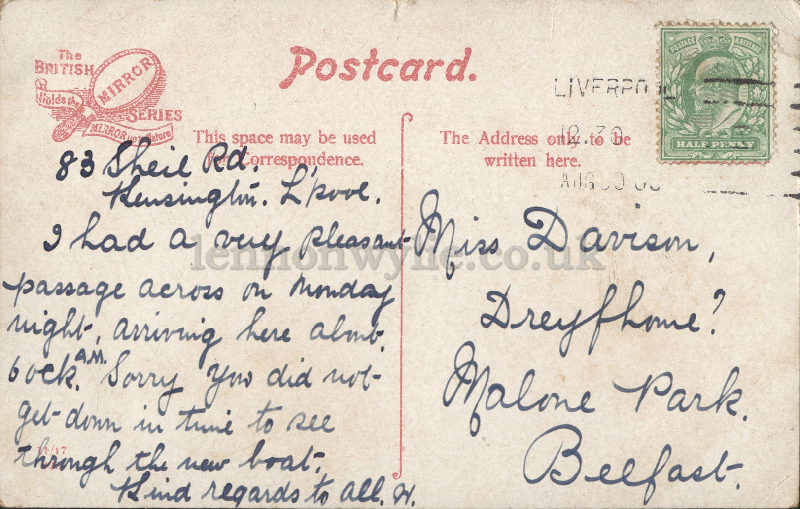 The
BRITISH
Holds the
MIRROR
SERIES
MIRROR up to Nature
Postcard.
This space may be used
for Correspondence.
The Address only to be
written here.
POSTAGE REVENUE
HALF PENNY
LIVERPOOL
12.30
AUG 30
83 Sheil Rd.
Kensington. L'pool.
I had a very pleasant
passage across on Monday
night, arriving here about
6 ock. A.M. Sorry you did not
get down in time to see
through the new boat.
Kind regards to all. W.
Miss Davison,
Malone Park.
Belfast.
lennonwylie.co.uk